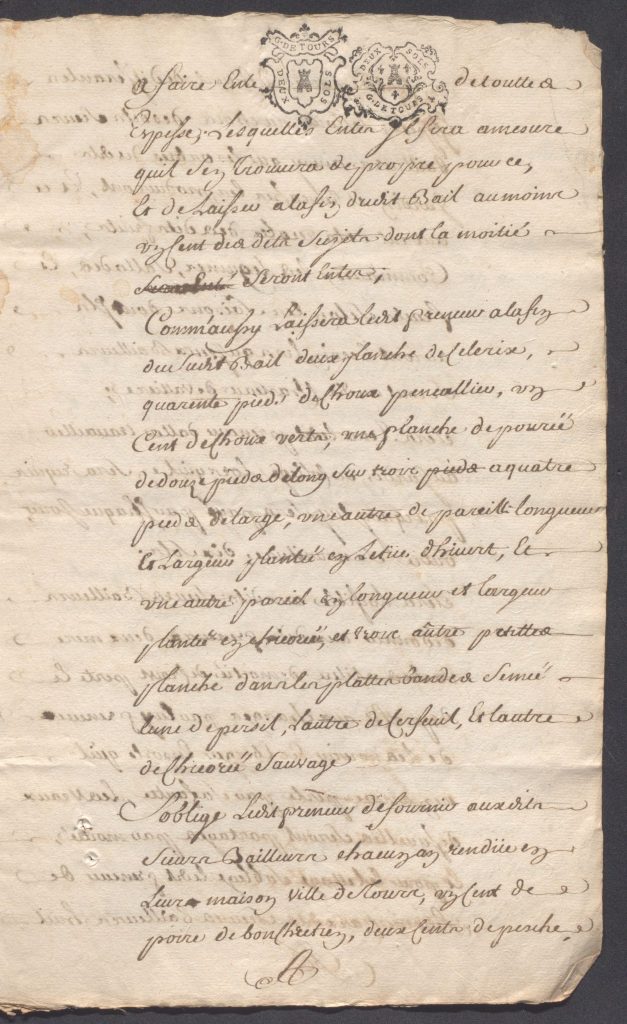 G. DE TOURS
DEUX SOLS
DEUX SOLS
G. DE TOURS
a faire Ente de touttes
Espesse, Lesquelles Enter Il sera amesure
quil Sen Trouvera de propre pour ce,
Et de Laisser alafin dudit Bail au moins
un Cent des dits Sujets dont la moitié
Seront Entez,
Commaussy Laissera ledit preneur alafin
du Sudit Bail deux planche de Celerix,
quarente pieds de Choux pencallier, un
Cent de Choux verts, une planche de poureé
de douze pieds de long sur trois pieds a quatre
pieds de large, une autre de pareille longueur
Et Largeur plantée en Letues d'hivert, Et
une autre pareil en longueur et largeur
plantée en chicoreé, et trois autre petittes
planche dans les plattes bandes Semeé
Lune de persil, Lautre de Cerfeuil, Et Lautre
de Chicoreé Sauvage
Soblige Ledit preneur de fournir auxdits
Sieurs Bailleurs chacun an rendüe en
Leur maison ville de Tours, un Cent de
poire de bon Chretien, deux Cents de pesche,